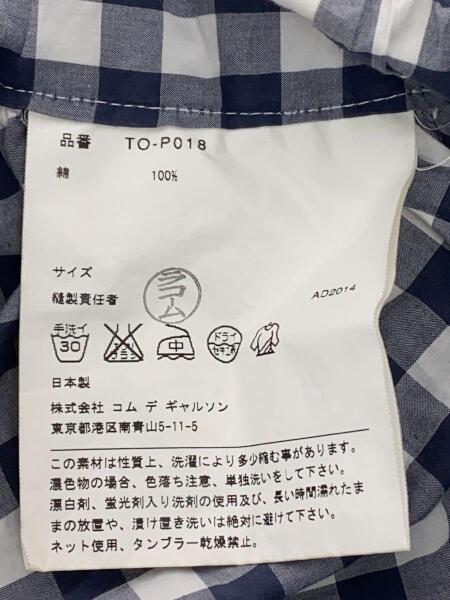 品番 TO-P018
綿 100%
サイズ
縫製責任者
AD2014
手洗イ
30
エンソ
サラシ
中
ドライ
セキユ系
日本製
株式会社 コム デ ギャルソン
東京都港区南青山5-11-5
この素材は性質上、洗濯により多少縮む事があります。
濃色物の場合、色落ち注意、単独洗いをして下さい。
漂白剤、蛍光剤入り洗剤の使用及び、長い時間濡れたま
まの放置や、漬け置き洗いは絶対に避けて下さい。
ネット使用、タンブラー乾燥禁止。